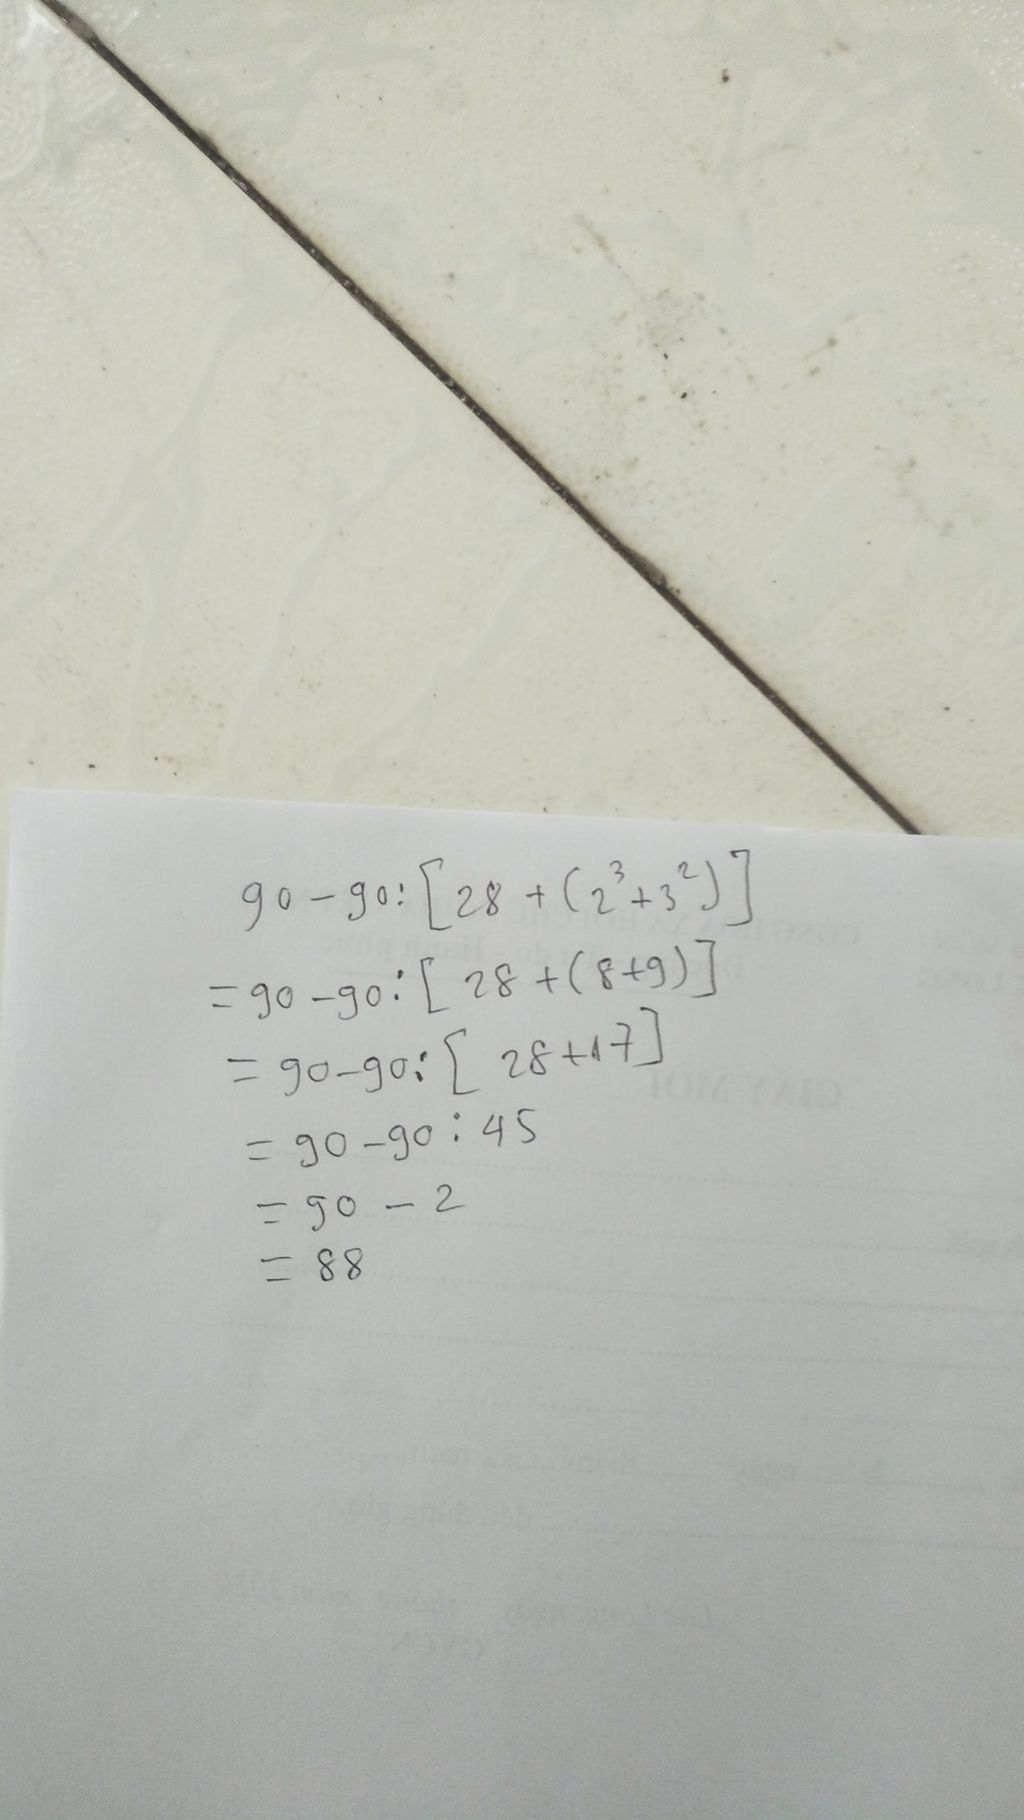 90 - 90 : [28 + (2³ + 3²)]
= 90 - 90 : [28 + (8 + 9)]
= 90 - 90 : [28 + 17]
= 90 - 90 : 45
= 90 - 2
= 88